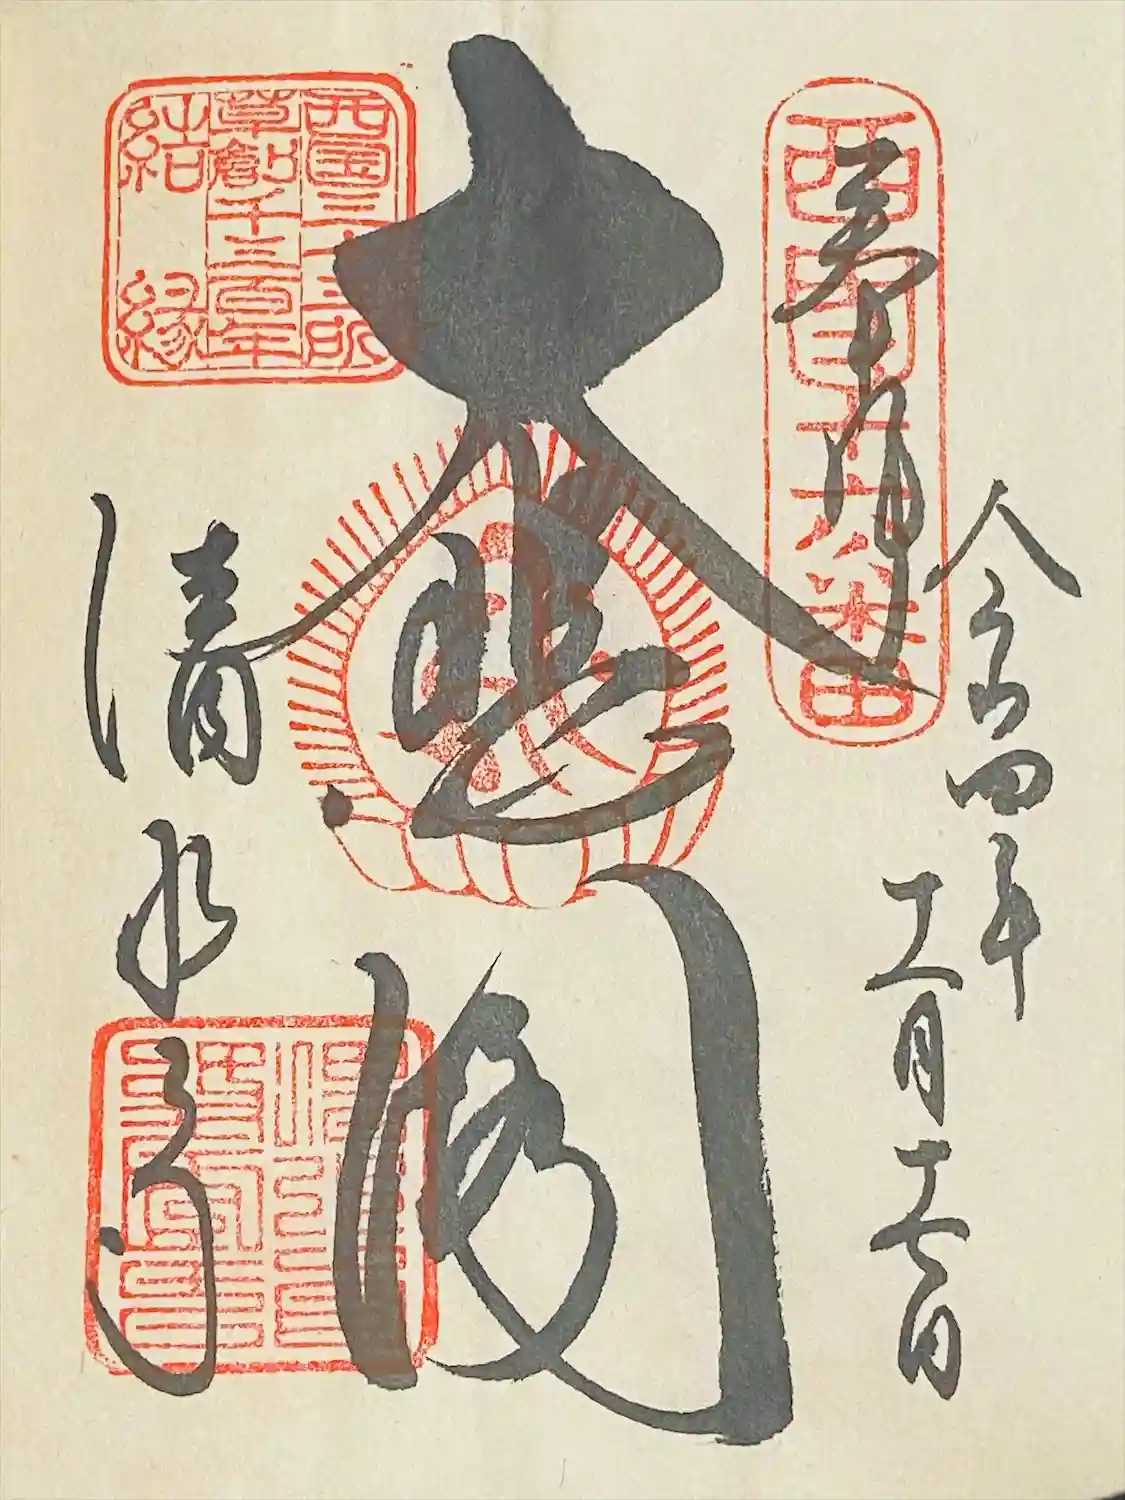 令和四年
十一月十七日
奉拝
西國十六番
大悲閣
西国三十三所
草創千三百年
結縁
清水寺